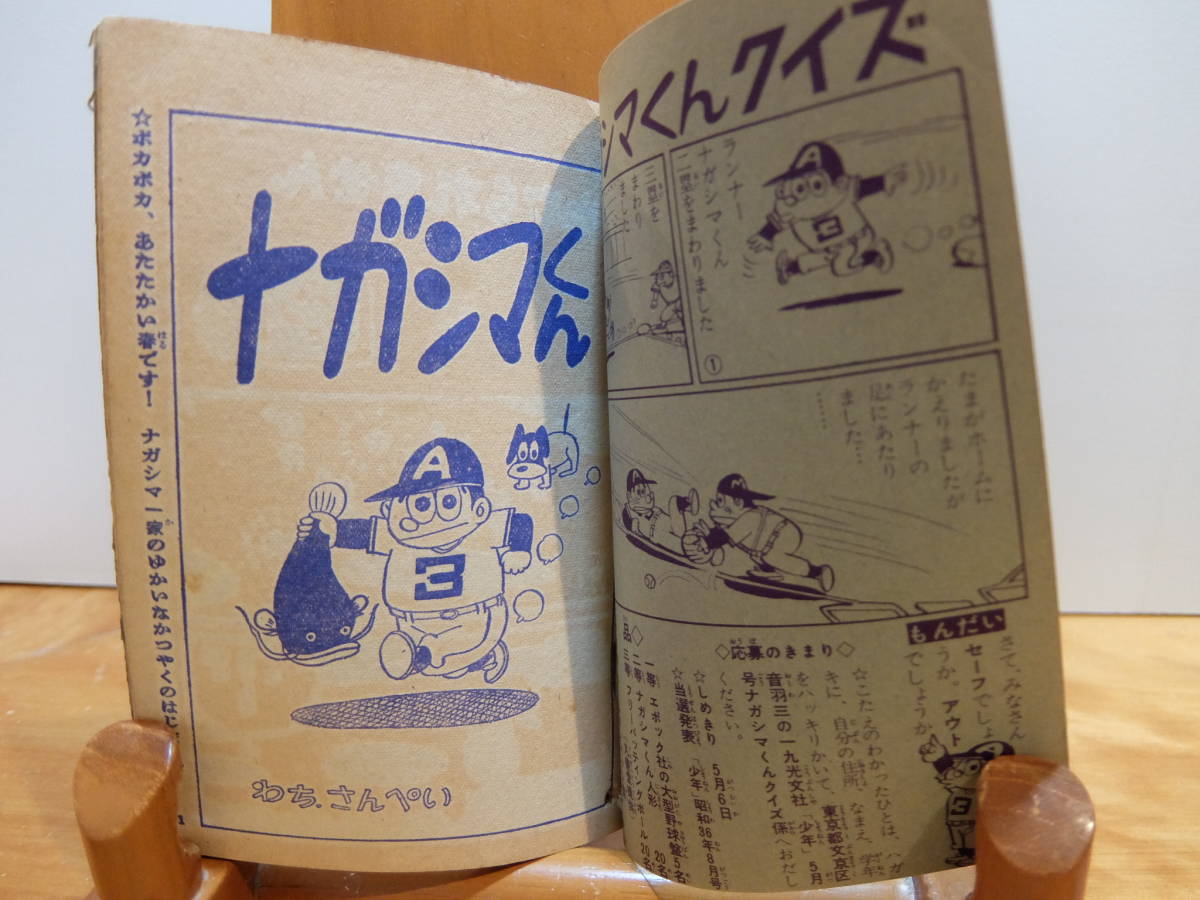 ☆ポカポカ、あたたかい春です！　ナガシマ一家のゆかいなかつやくのはじ
はる
か
ナガシマくん
A
3
わち.さんぺい
1
シマくんクイズ
ランナー
ナガシマくん
二塁をまわりました
①
A
3
三塁を
まわり
ました
たまがホームに
かえりましたが
ランナーの
足にあたり
ました…
……
もんだい
さて、みなさん
セーフでしょ
うか。アウト
でしょうか。
3
◇応募のきまり◇
☆こたえのわかったひとは、ハガ
キに、自分の住所、なまえ、学年
をハッキリかいて、東京都文京区
音羽三の一九光文社「少年」5月
号ナガシマくんクイズ係へおだし
ください。
☆しめきり　5月6日
☆当選発表　「少年」昭和36年8月号
品◇
一等　エポック社の大型野球盤5名
二等　ナガシマくん人形　20名
三等　フリーバッティングボール20名